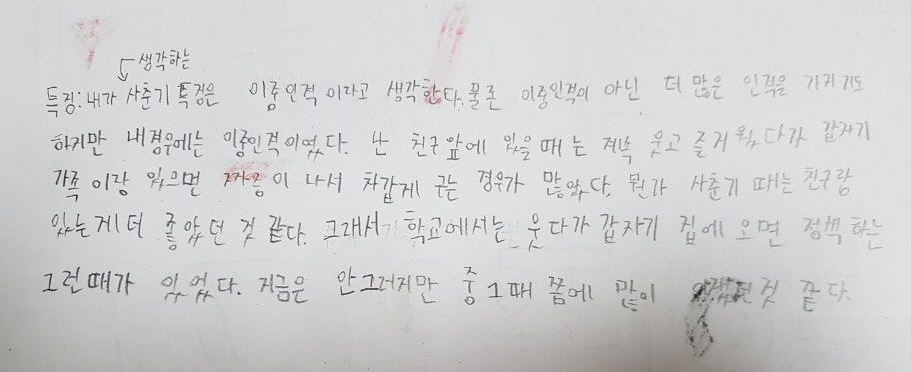 생각하는
특징: 내가 사춘기 특징은 이중인격 이라고 생각한다. 물론 이중인격이 아닌 더 많은 인격을 가지기도
하지만 내 경우에는 이중인격이였다. 난 친구앞에 있을때는 계속 웃고 즐거웠다가 갑자기
가족이랑 있으면 이 나서 차갑게 구는 경우가 많았다. 뭔가 사춘기 때는 친구랑
있는게 더 좋았던 것 같다. 그래서 학교에서는 웃다가 갑자기 집에 오면 정책하는
그런때가 있었다. 지금은 안그러지만 중1때 쯤에 많이 것 같다.